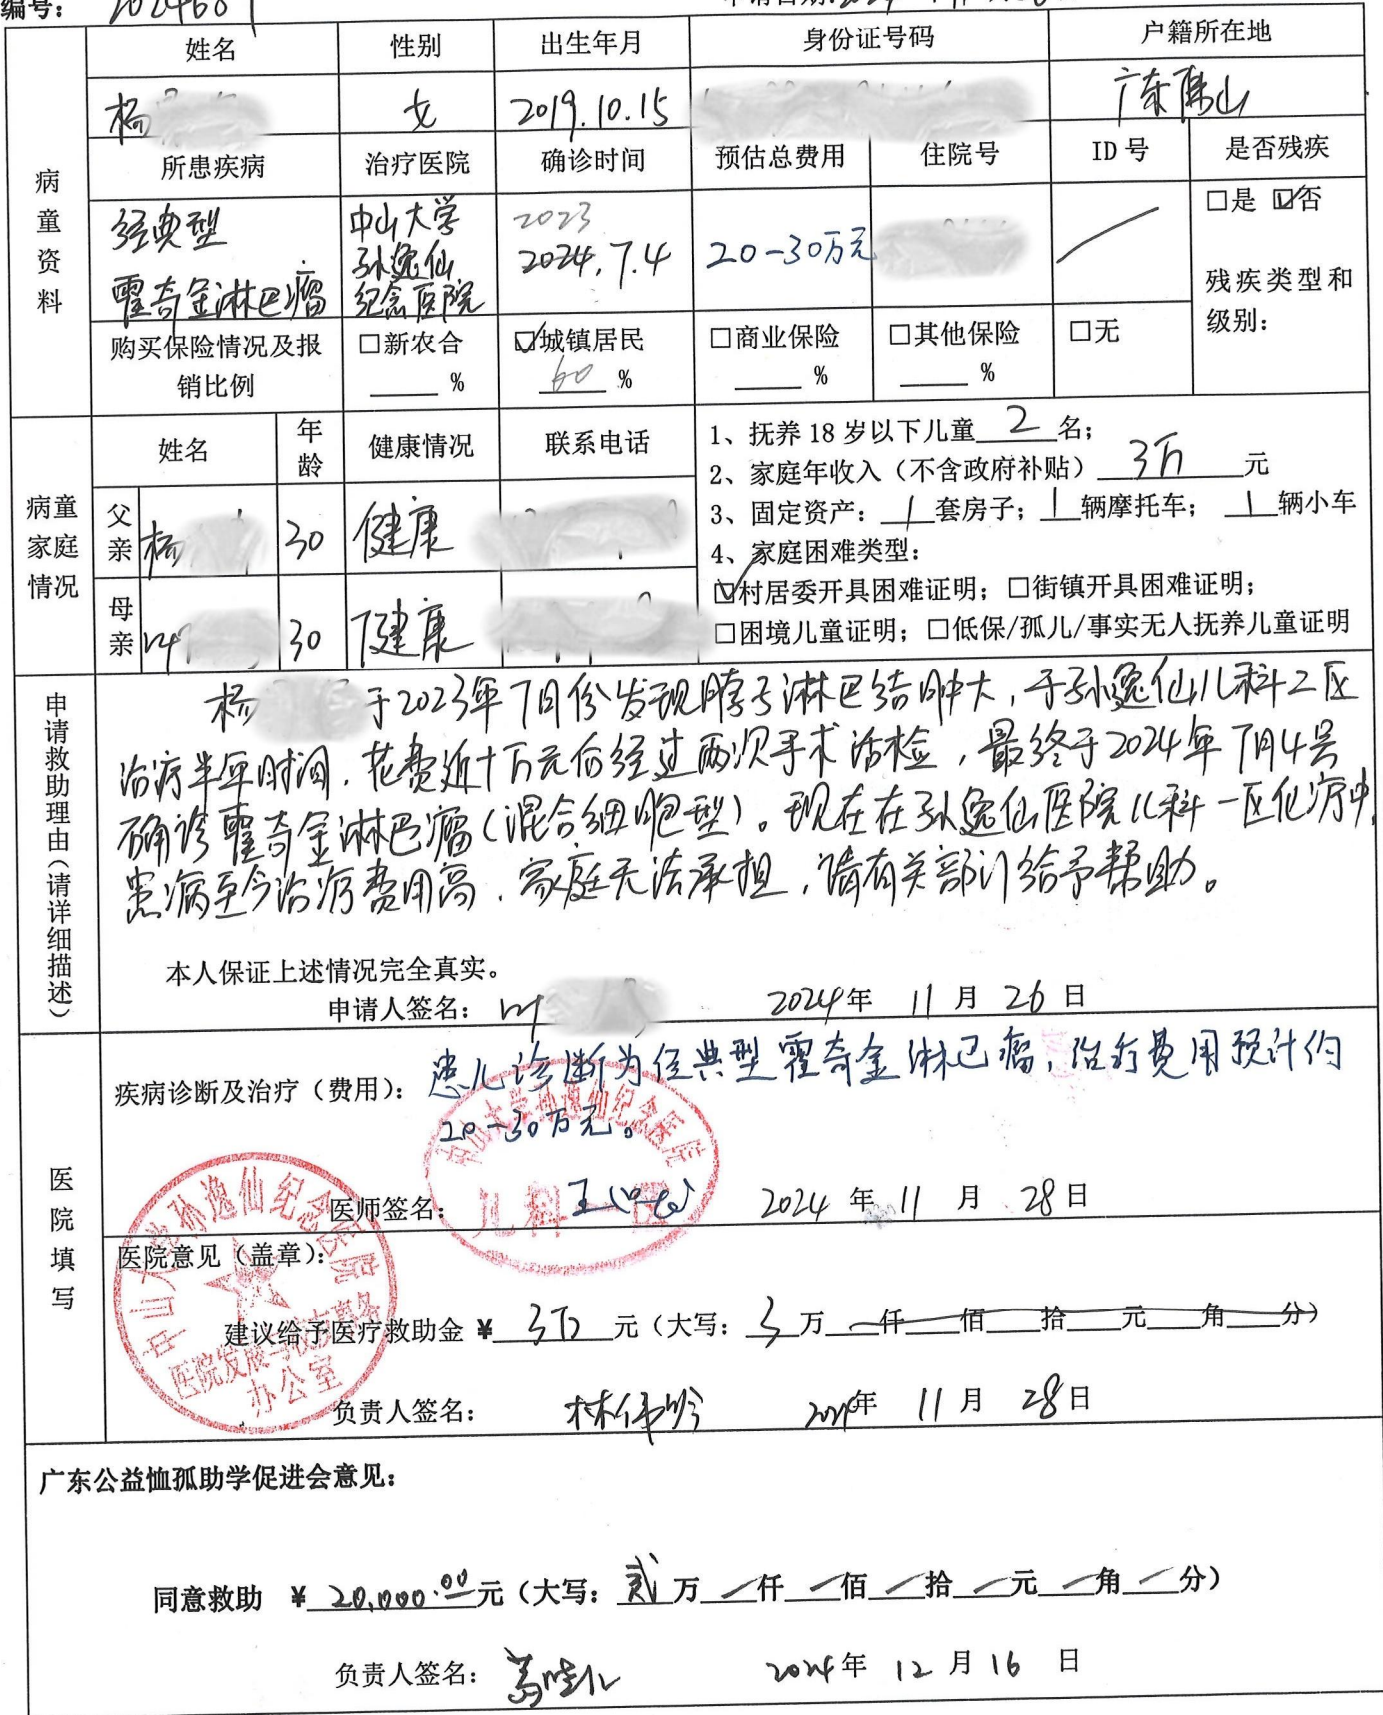 编号：
姓名 性别 出生年月 身份证号码 户籍所在地
杨 女 2019.10.15 广东佛山
病童资料
所患疾病 治疗医院 确诊时间 预估总费用 住院号 ID号 是否残疾
经典型
霍奇金淋巴瘤
中山大学
孙逸仙
纪念医院
2023
2024.7.4
20-30万元
□是 ☑否
残疾类型和
级别：
购买保险情况及报
销比例
□新农合
____%
☑城镇居民
60 %
□商业保险
____%
□其他保险
____%
□无
病童
家庭
情况
姓名 年龄 健康情况 联系电话
父亲 杨 30 健康
母亲 叶 30 健康
1、抚养18岁以下儿童 2 名；
2、家庭年收入（不含政府补贴） 3万 元
3、固定资产： 1 套房子； 1 辆摩托车； 1 辆小车
4、家庭困难类型：
☑村居委开具困难证明；□街镇开具困难证明；
□困境儿童证明；□低保/孤儿/事实无人抚养儿童证明
申请救助理由（请详细描述）
杨 于2023年7月份发现脖子淋巴结肿大，于孙逸仙儿科二区
治疗半年时间，花费近十万元后经过两次手术活检，最终于2024年7月4号
确诊霍奇金淋巴瘤（混合细胞型）。现在在孙逸仙医院儿科一区化疗中，
患病至今治疗费用高，家庭无法承担，请有关部门给予帮助。
本人保证上述情况完全真实。
申请人签名： 叶 2024年 11月 26日
医院填写
疾病诊断及治疗（费用）： 患儿诊断为经典型霍奇金淋巴瘤，治疗费用预计约
20-30万元。
中山大学孙逸仙纪念医院
儿科一区
医师签名： 王 2024年 11月 28日
医院意见（盖章）：
中山大学孙逸仙纪念医院
办公室
建议给予医疗救助金 ¥ 3万 元（大写： 3 万 仟 佰 拾 元 角 分）
负责人签名： 林伟 2024年 11月 28日
广东公益恤孤助学促进会意见：
同意救助 ¥ 20,000.00 元（大写： 贰 万 仟 佰 拾 元 角 分）
负责人签名： 2024年 12月 16日